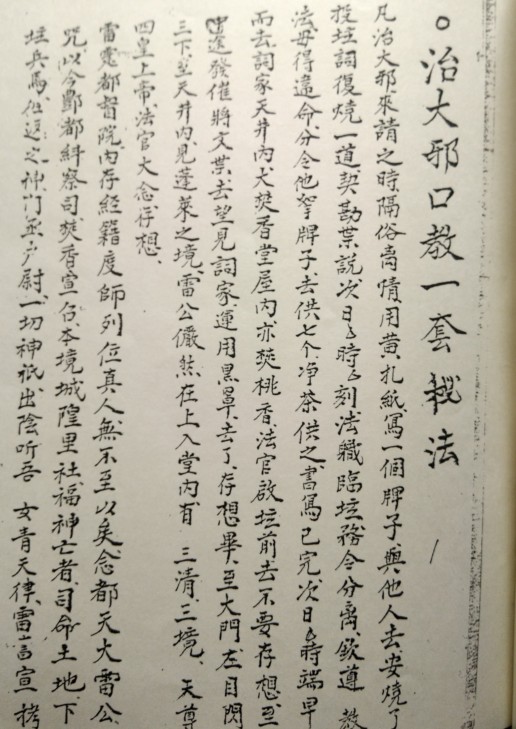 ○治大邪口教一套秘法
凡治大邪來請之時隔俗离情用黄扎紙寫一個牌子與他人去安燒了
投坛詞復燒一道契勘葉説次日時刻法職臨坛務令分离欽遵教
法毋得違命分令他拏牌子去供七个净茶供之書寫已完次日時端早
而去詞家天井内犬焚香堂屋内亦焚桃香法官啟坛前去不要存想至
中途發催將文葉去望見詞家運用黑旱去了存想畢至大門左目閃
三下至天井内見蓬萊之境雷公儼然在上入堂内有 三清三境天尊
四皇上帝法官大念存想
雷霆都督院内存經籍度師列位真人無不至以矣念都天大雷公
咒以今酆都糾察司焚香宣召本境城隍里社福神亡者司命土地下
坛兵馬之神門丞户尉一切神祇出陰听吾 女青天律雷言宣栲